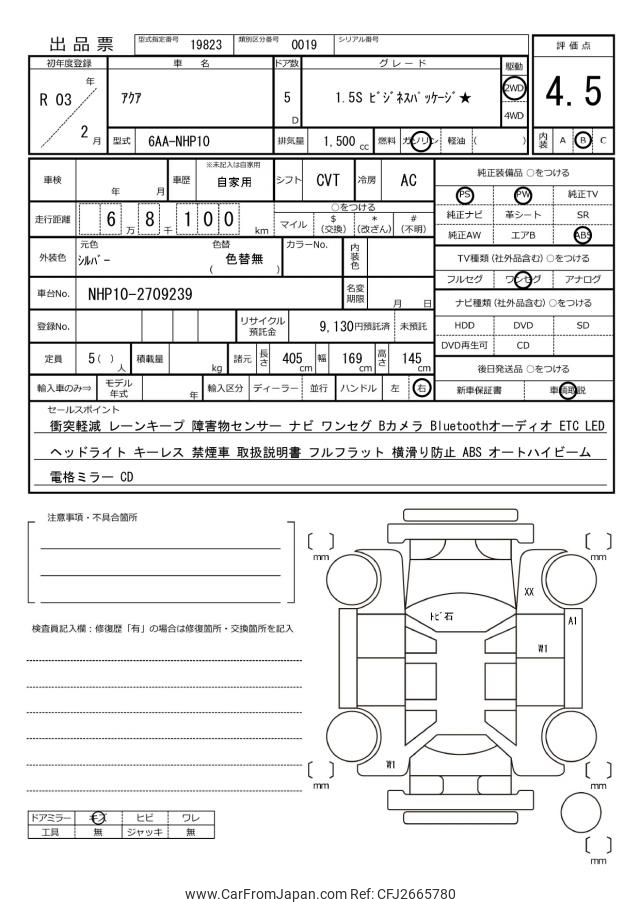 出品票
型式指定番号 19823 類別区分番号 0019 シリアル番号
評価点
4.5
内装 A B C
初年度登録 車名 ドア数 グレード 駆動
R 03 年 2 月
アクア
5 D
1.5S ビジネスパッケージ★
2WD
4WD
型式 6AA-NHP10 排気量 1,500 cc 燃料 ガソリン 軽油 ( )
車検 年 月 車歴 ※未記入は自家用 自家用 シフト CVT 冷房 AC
走行距離 6 万 8 千 1 0 0 km
○をつける
マイル $ (交換) * (改ざん) # (不明)
外装色 元色 シルバー 色替 ( 色替無 ) カラーNo. 内装色
車台No. NHP10-2709239 名変期限 月 日
登録No. リサイクル預託金 9,130円預託済 未預託
定員 5( ) 人 積載量 kg 諸元 長さ 405 cm 幅 169 cm 高さ 145 cm
輸入車のみ⇒ モデル年式 年 輸入区分 ディーラー 並行 ハンドル 左 右
純正装備品 ○をつける
PS PW 純正TV
純正ナビ 革シート SR
純正AW エアB ABS
TV種類 (社外品含む) ○をつける
フルセグ ワンセグ アナログ
ナビ種類 (社外品含む) ○をつける
HDD DVD SD
DVD再生可 CD
後日発送品 ○をつける
新車保証書 車輌取説
セールスポイント
衝突軽減 レーンキープ 障害物センサー ナビ ワンセグ Bカメラ Bluetoothオーディオ ETC LED
ヘッドライト キーレス 禁煙車 取扱説明書 フルフラット 横滑り防止 ABS オートハイビーム
電格ミラー CD
注意事項・不具合箇所
検査員記入欄：修復歴「有」の場合は修復箇所・交換箇所を記入
ドアミラー キズ ヒビ ワレ
工具 無 ジャッキ 無
mm
mm
XX
トビ石
A1
W1
W1
mm
mm
mm
www.CarFromJapan.com Ref: CFJ2665780